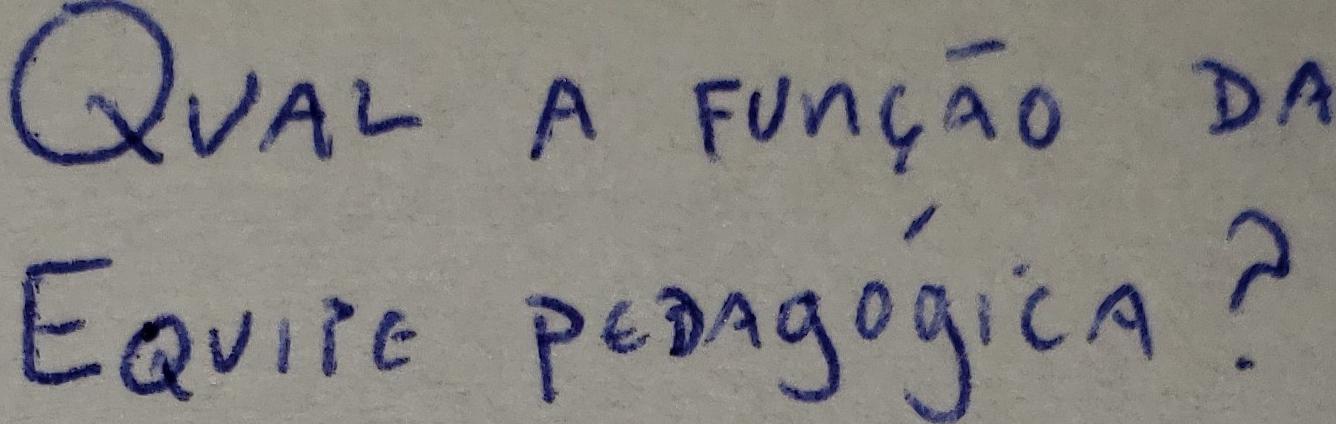 QUAL A FUNÇÃO DA
EQUIPE PEDAGÓGICA?